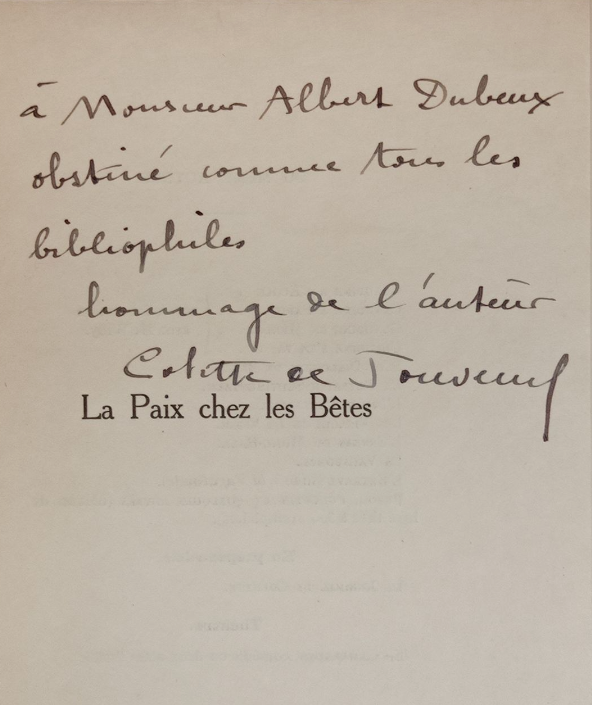 à Monsieur Albert Dubeux
obstiné comme tous les
bibliophiles
hommage de l'auteur
Colette de Jouvenel
La Paix chez les Bêtes